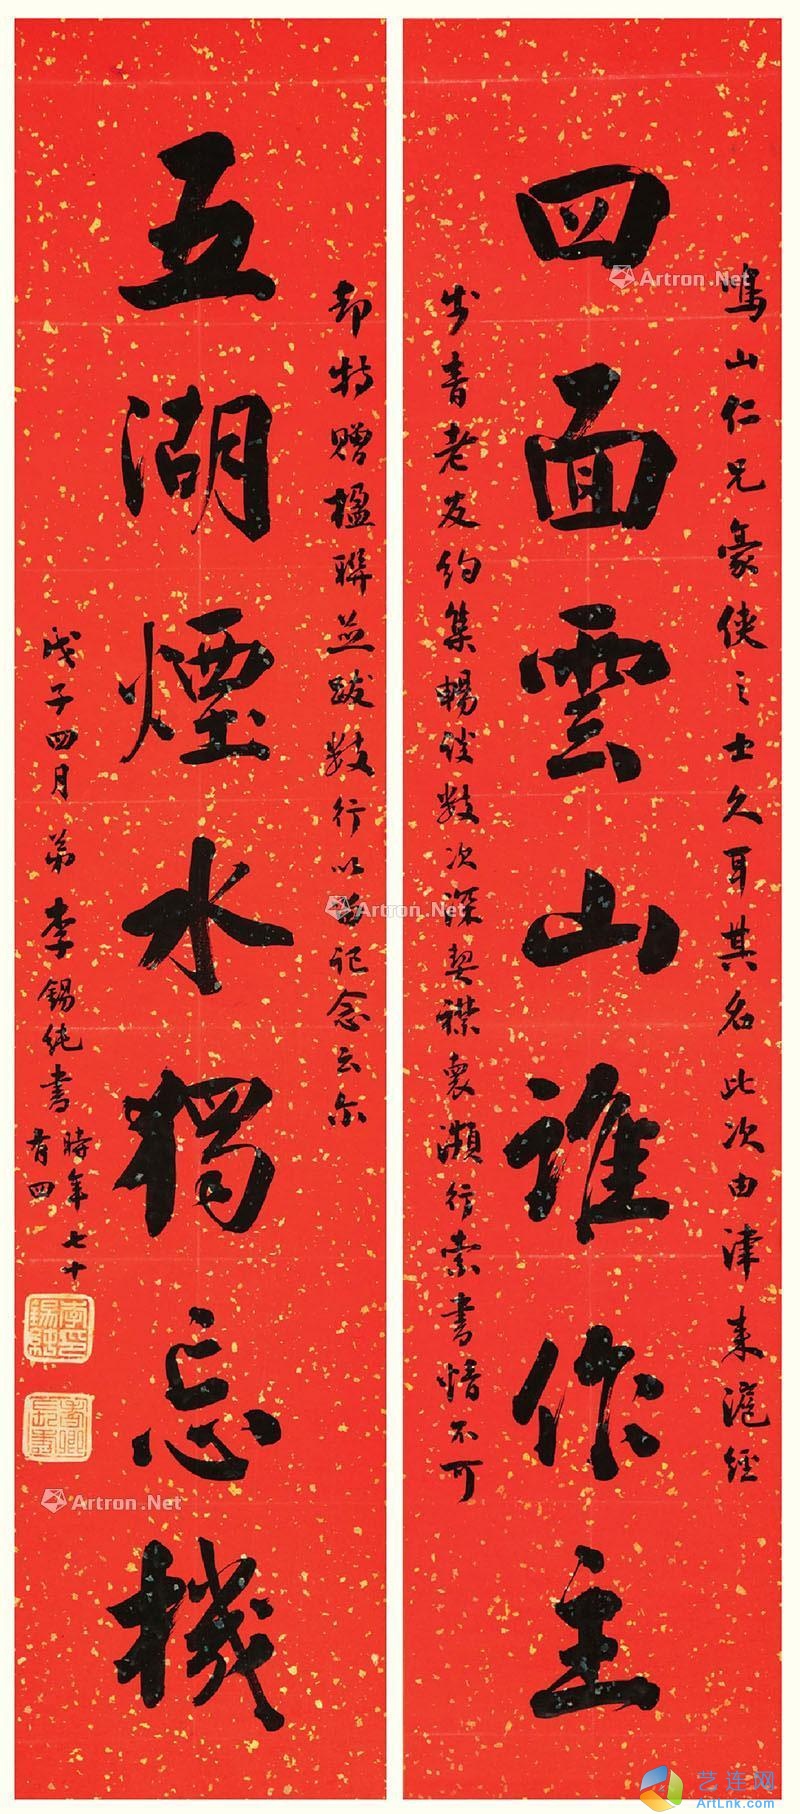 鳴山仁兄豪俠之士久耳其名此次由津來滬經
四面雲山誰作主
步青老友約集暢談數次深契襟裏瀕行索書情不可
却特贈楹聯並跋數行以留記念云尔
五湖煙水獨忘機
戊子四月弟李錫純書時年七十
有四
李錫純印
Artron.Net
Artron.Net
Artron.Net
艺连网
ArtLnk.com